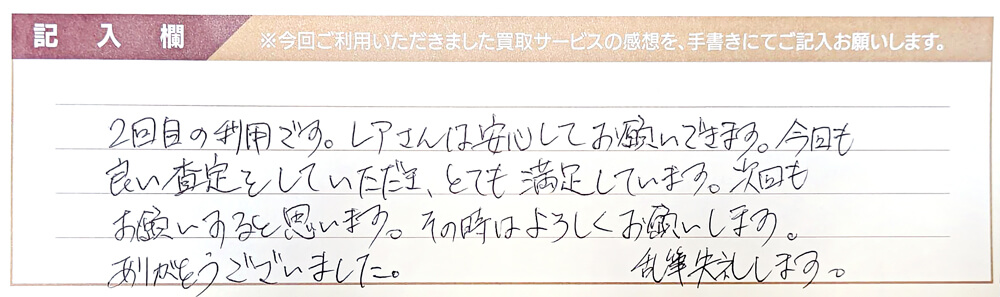 記入欄 ※今回ご利用いただきました買取サービスの感想を、手書きにてご記入お願いします。
2回目の利用です。レアさんは安心してお願いできます。今回も
良い査定をしていただき、とても満足しています。次回も
お願いすると思います。その時はよろしくお願いします。
ありがとうございました。 乱筆失礼します。